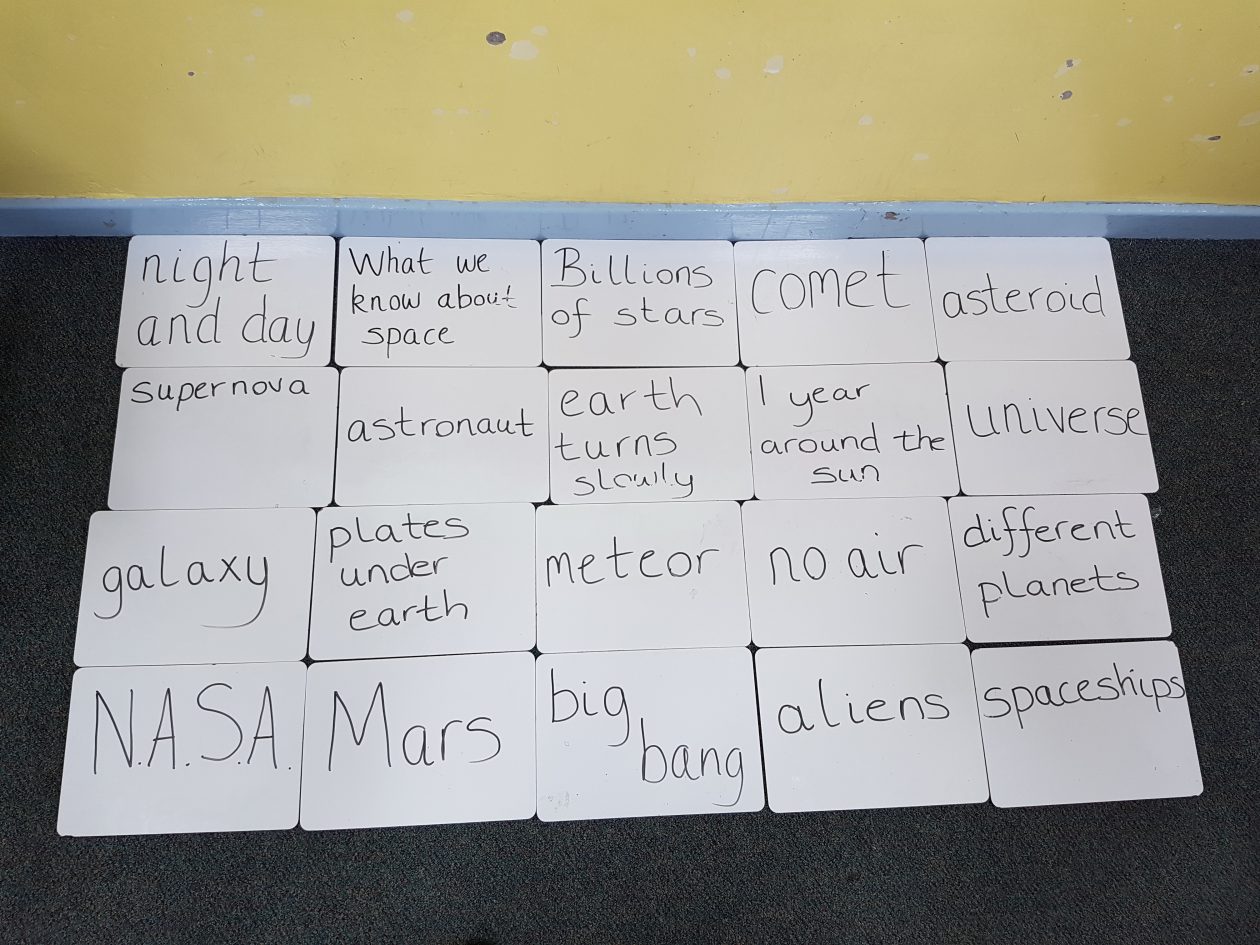 night
and day
What we
know about
space
Billions
of stars
comet
asteroid
supernova
astronaut
earth
turns
slowly
1 year
around the
sun
universe
galaxy
plates
under
earth
meteor
no air
different
planets
N.A.S.A.
Mars
big
bang
aliens
spaceships